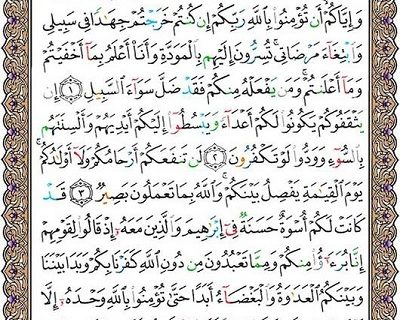 وَإِيَّاكُمْ أَن تُؤْمِنُوا۟ بِٱللَّهِ رَبِّكُمْ إِن كُنتُمْ خَرَجْتُمْ جِهَٰدًا فِى سَبِيلِى
وَٱبْتِغَآءَ مَرْضَاتِى ۚ تُسِرُّونَ إِلَيْهِم بِٱلْمَوَدَّةِ وَأَنَا۠ أَعْلَمُ بِمَآ أَخْفَيْتُمْ
وَمَآ أَعْلَنتُمْ ۚ وَمَن يَفْعَلْهُ مِنكُمْ فَقَدْ ضَلَّ سَوَآءَ ٱلسَّبِيلِ ١ إِن
يَثْقَفُوكُمْ يَكُونُوا۟ لَكُمْ أَعْدَآءً وَيَبْسُطُوٓا۟ إِلَيْكُمْ أَيْدِيَهُمْ وَأَلْسِنَتَهُم
بِٱلسُّوٓءِ وَوَدُّوا۟ لَوْ تَكْفُرُونَ ٢ لَن تَنفَعَكُمْ أَرْحَامُكُمْ وَلَآ أَوْلَٰدُكُمْ ۚ
يَوْمَ ٱلْقِيَٰمَةِ يَفْصِلُ بَيْنَكُمْ ۚ وَٱللَّهُ بِمَا تَعْمَلُونَ بَصِيرٌ ٣ قَدْ
كَانَتْ لَكُمْ أُسْوَةٌ حَسَنَةٌ فِىٓ إِبْرَٰهِيمَ وَٱلَّذِينَ مَعَهُۥٓ إِذْ قَالُوا۟ لِقَوْمِهِمْ
إِنَّا بُرَءَٰٓؤُا۟ مِنكُمْ وَمِمَّا تَعْبُدُونَ مِن دُونِ ٱللَّهِ كَفَرْنَا بِكُمْ وَبَدَا بَيْنَنَا
وَبَيْنَكُمُ ٱلْعَدَٰوَةُ وَٱلْبَغْضَآءُ أَبَدًا حَتَّىٰ تُؤْمِنُوا۟ بِٱللَّهِ وَحْدَهُۥٓ إِلَّا